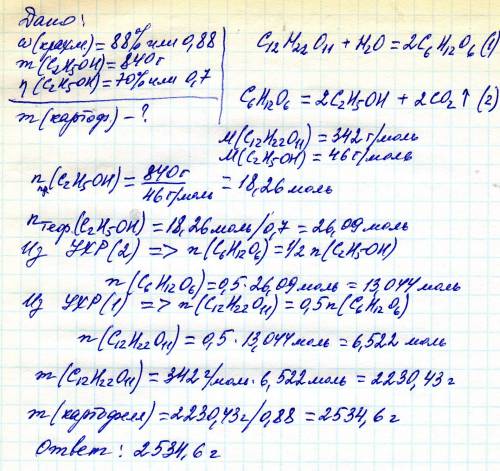 Дано:
ω(крахм.)=88% или 0,88
m(C₂H₅OH)=840г
η(C₂H₅OH)=70% или 0,7
m(картоф)-?
C₁₂H₂₂O₁₁ + H₂O = 2C₆H₁₂O₆ (1)
C₆H₁₂O₆ = 2C₂H₅OH + 2CO₂↑ (2)
M(C₁₂H₂₂O₁₁)=342 г/моль
M(C₂H₅OH)=46г/моль
nпр(C₂H₅OH) = 840г / 46г/моль = 18,26 моль
nтеор(C₂H₅OH)=18,26 моль/0,7 = 26,09 моль
Из УХР(2) => n(C₆H₁₂O₆)=1/2 n(C₂H₅OH)
n(C₆H₁₂O₆)=0,5·26,09 моль = 13,044 моль
Из УХР(1) => n(C₁₂H₂₂O₁₁)=0,5n(C₆H₁₂O₆)
n(C₁₂H₂₂O₁₁)=0,5·13,044 моль=6,522 моль
m(C₁₂H₂₂O₁₁)=342г/моль·6,522 моль=2230,43г
m(картофеля)=2230,43г/0,88 = 2534,6г
Ответ: 2534,6г